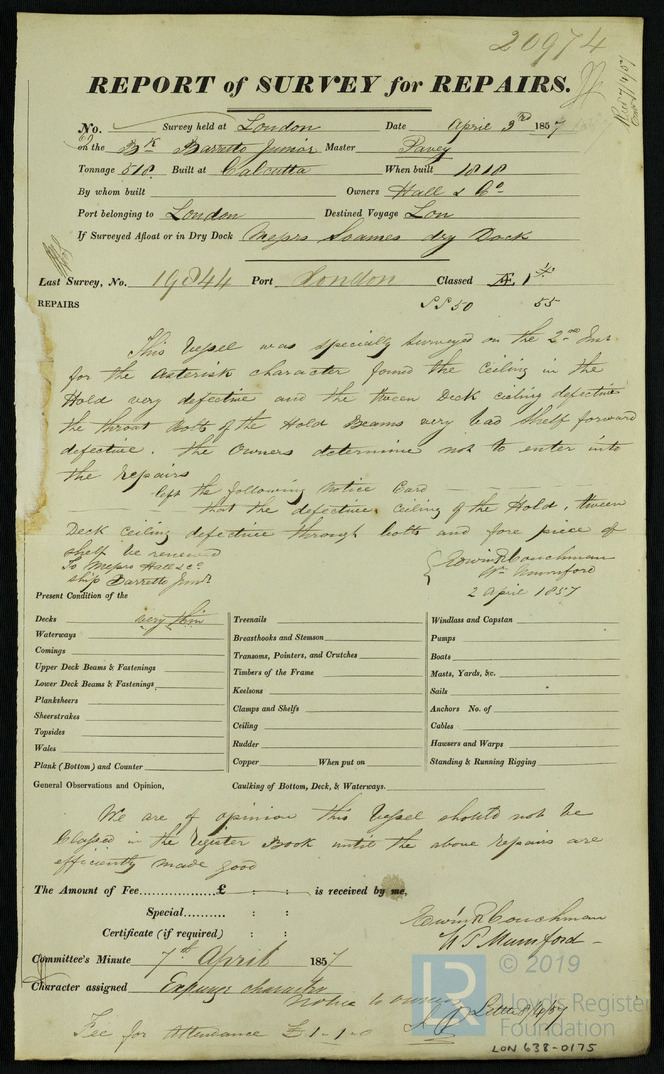 20974
REPORT of SURVEY for REPAIRS.
No. Survey held at London Date April 3rd 1857
on the Bk Barretto Junior Master Pavey
Tonnage 518 Built at Calcutta When built 1818
By whom built Owners Hall & Co
Port belonging to London Destined Voyage Lon
If Surveyed Afloat or in Dry Dock Messrs Soames dry Dock
Last Survey, No. 19844 Port London Classed Æ 1
REPAIRS SS 50 55
This Vessel was specially surveyed on the 2nd Inst
for the Asterisk character found the Ceiling in the
Hold very defective and the tween Deck ceiling defective
the throat Bolts of the Hold Beams very bad Shelf forward
defective. the Owners determine not to enter into
the repairs
left the following Notice Card
that the defective ceiling of the Hold, tween
Deck ceiling defective through bolts and fore piece of
shelf be renewed
To Messrs Hall & Co
ship Barretto Junr
Edwin R Couchman
Wm Mumford
2 April 1857
Present Condition of the
Decks very thin
Waterways
Comings
Upper Deck Beams & Fastenings
Lower Deck Beams & Fastenings
Planksheers
Sheerstrakes
Topsides
Wales
Plank (Bottom) and Counter
Treenails
Breasthooks and Stemson
Transoms, Pointers, and Crutches
Timbers of the Frame
Keelsons
Clamps and Shelfs
Ceiling
Rudder
Copper When put on
Windlass and Capstan
Pumps
Boats
Masts, Yards, &c.
Sails
Anchors No. of
Cables
Hawsers and Warps
Standing & Running Rigging
General Observations and Opinion, Caulking of Bottom, Deck, & Waterways.
We are of opinion this Vessel should not be
Classed in the Register Book until the above repairs are
efficiently made good
The Amount of Fee................£ : : is received by me,
Special............ : :
Certificate (if required) : :
Edwin R Couchman
W P Mumford
Committee's Minute 7th April 1857
Character assigned Expunge character
Notice to owners
Letter 8/4/57
Fee for Attendance £1-1-0
© 2019
LR
Lloyd's Register
Foundation
LON 638-0175